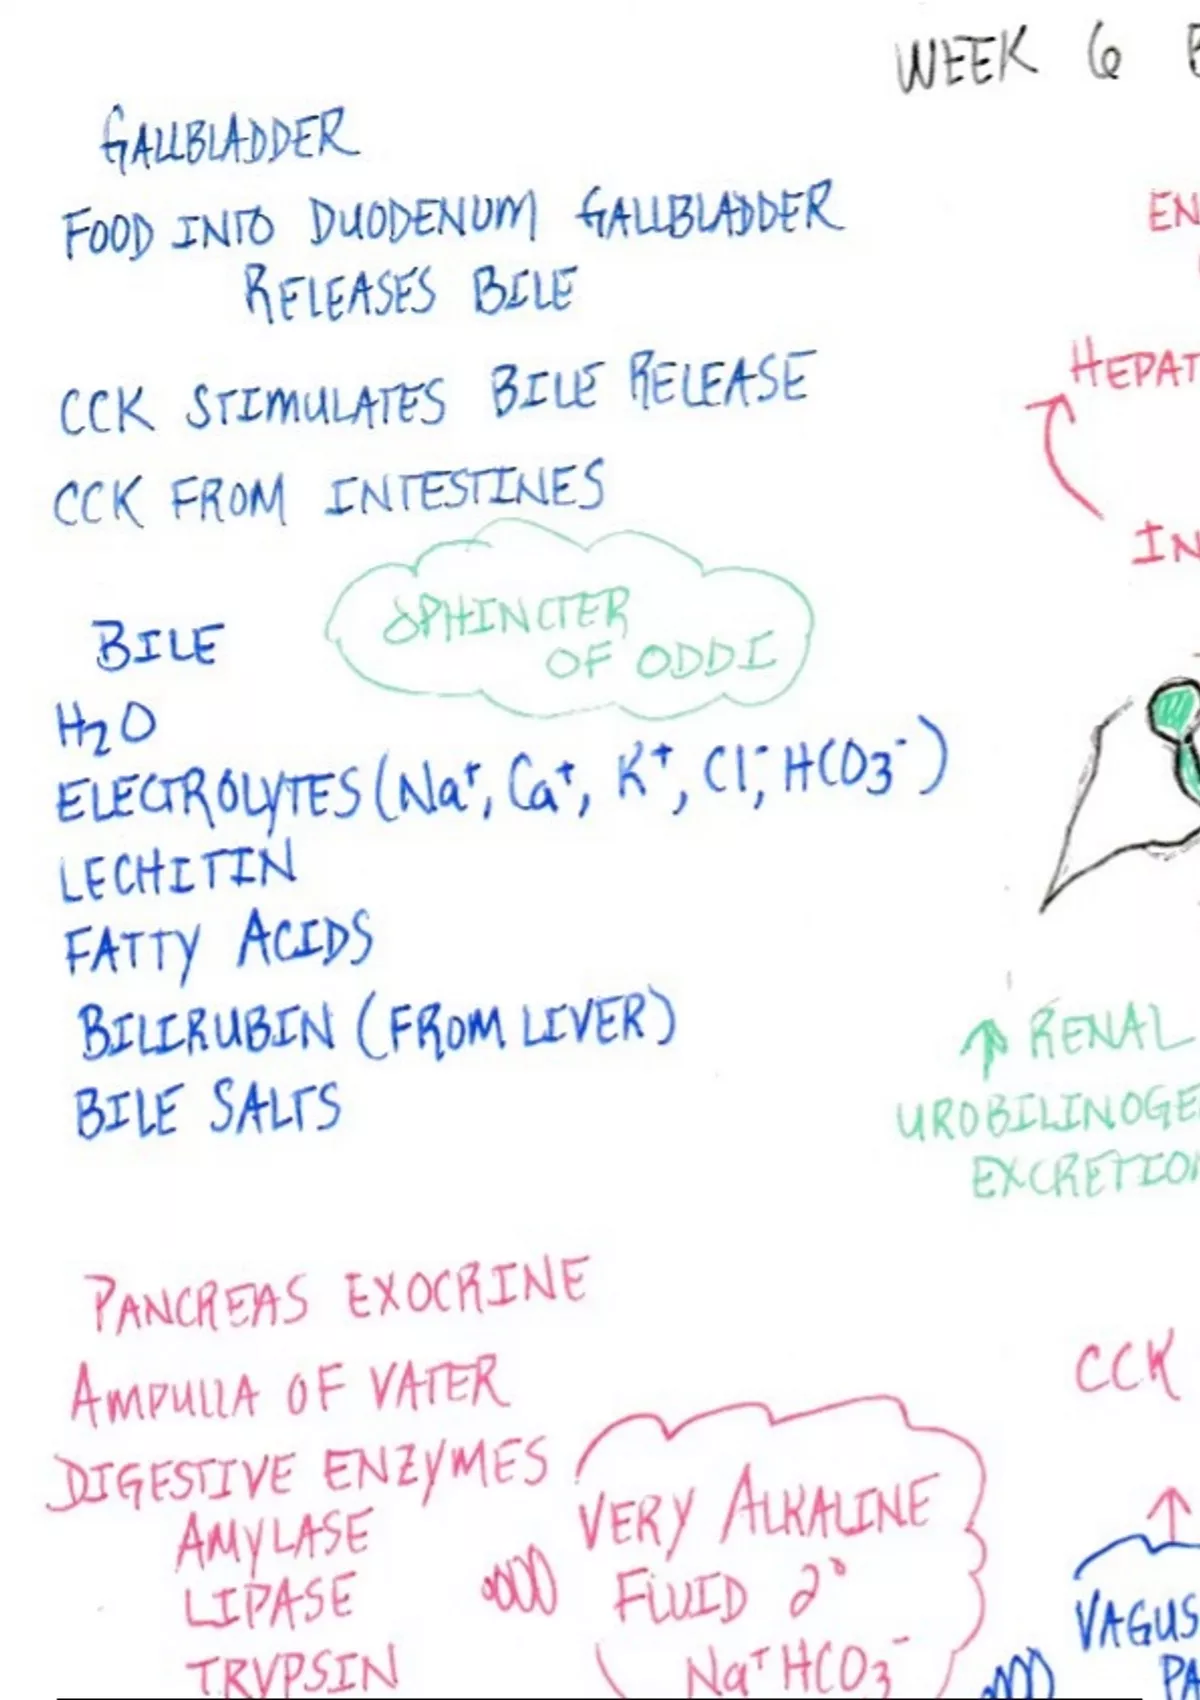 WEEK 6
GALLBLADDER
FOOD INTO DUODENUM GALLBLADDER
RELEASES BILE
CCK STIMULATES BILE RELEASE
CCK FROM INTESTINES
SPHINCTER
OF ODDI
BILE
H2O
ELECTROLYTES (Na+, Ca+, K+, Cl-, HCO3-)
LECHITIN
FATTY ACIDS
BILIRUBIN (FROM LIVER)
BILE SALTS
PANCREAS EXOCRINE
AMPULLA OF VATER
DIGESTIVE ENZYMES
AMYLASE
LIPASE
TRYPSIN
VERY ALKALINE
FLUID 2°
Na+ HCO3-
EN
HEPAT
IN
↑ RENAL
UROBILINOGE
EXCRETION
CCK
↑
VAGUS
PA